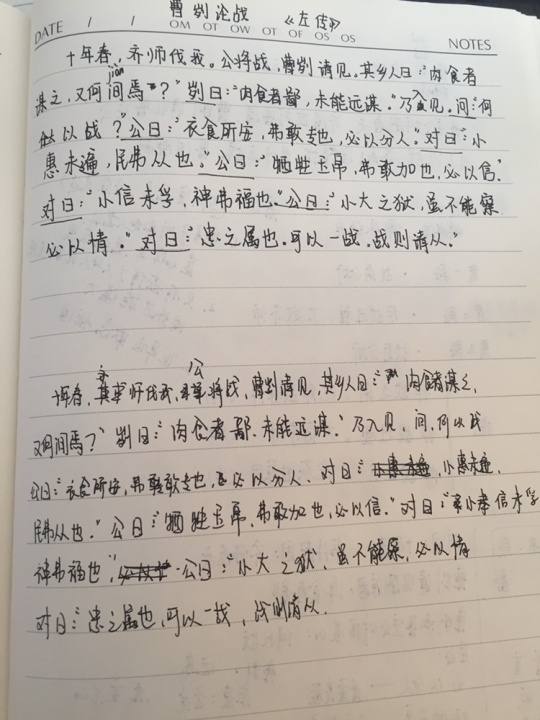 曹刿论战 《左传》
DATE / /
OM OT OW OT OF OS OS
NOTES
十年春，齐师伐我。公将战，曹刿请见。其乡人曰："肉食者
jiàn
谋之，又何间焉？"刿曰："肉食者鄙，未能远谋。"乃入见。问："何
以战？"公曰："衣食所安，弗敢专也，必以分人。"对曰："小
惠未遍，民弗从也。"公曰："牺牲玉帛，弗敢加也，必以信。"
对曰："小信未孚，神弗福也。"公曰："小大之狱，虽不能察
必以情。"对曰："忠之属也。可以一战，战则请从。"
齐 公
十年春，师伐我，将战，曹刿请见，其乡人曰："肉食者谋之，
又何间焉？"刿曰："肉食者鄙，未能远谋。"乃入见，问，何以战
公曰："衣食所安，弗敢专也，必以分人。对曰："小惠未遍，
民弗从也。"公曰："牺牲玉帛，弗敢加也，必以信。"对曰："小信未孚
神弗福也，"公曰："小大之狱，虽不能察，必以情
对曰："忠之属也，可以一战，战则请从。